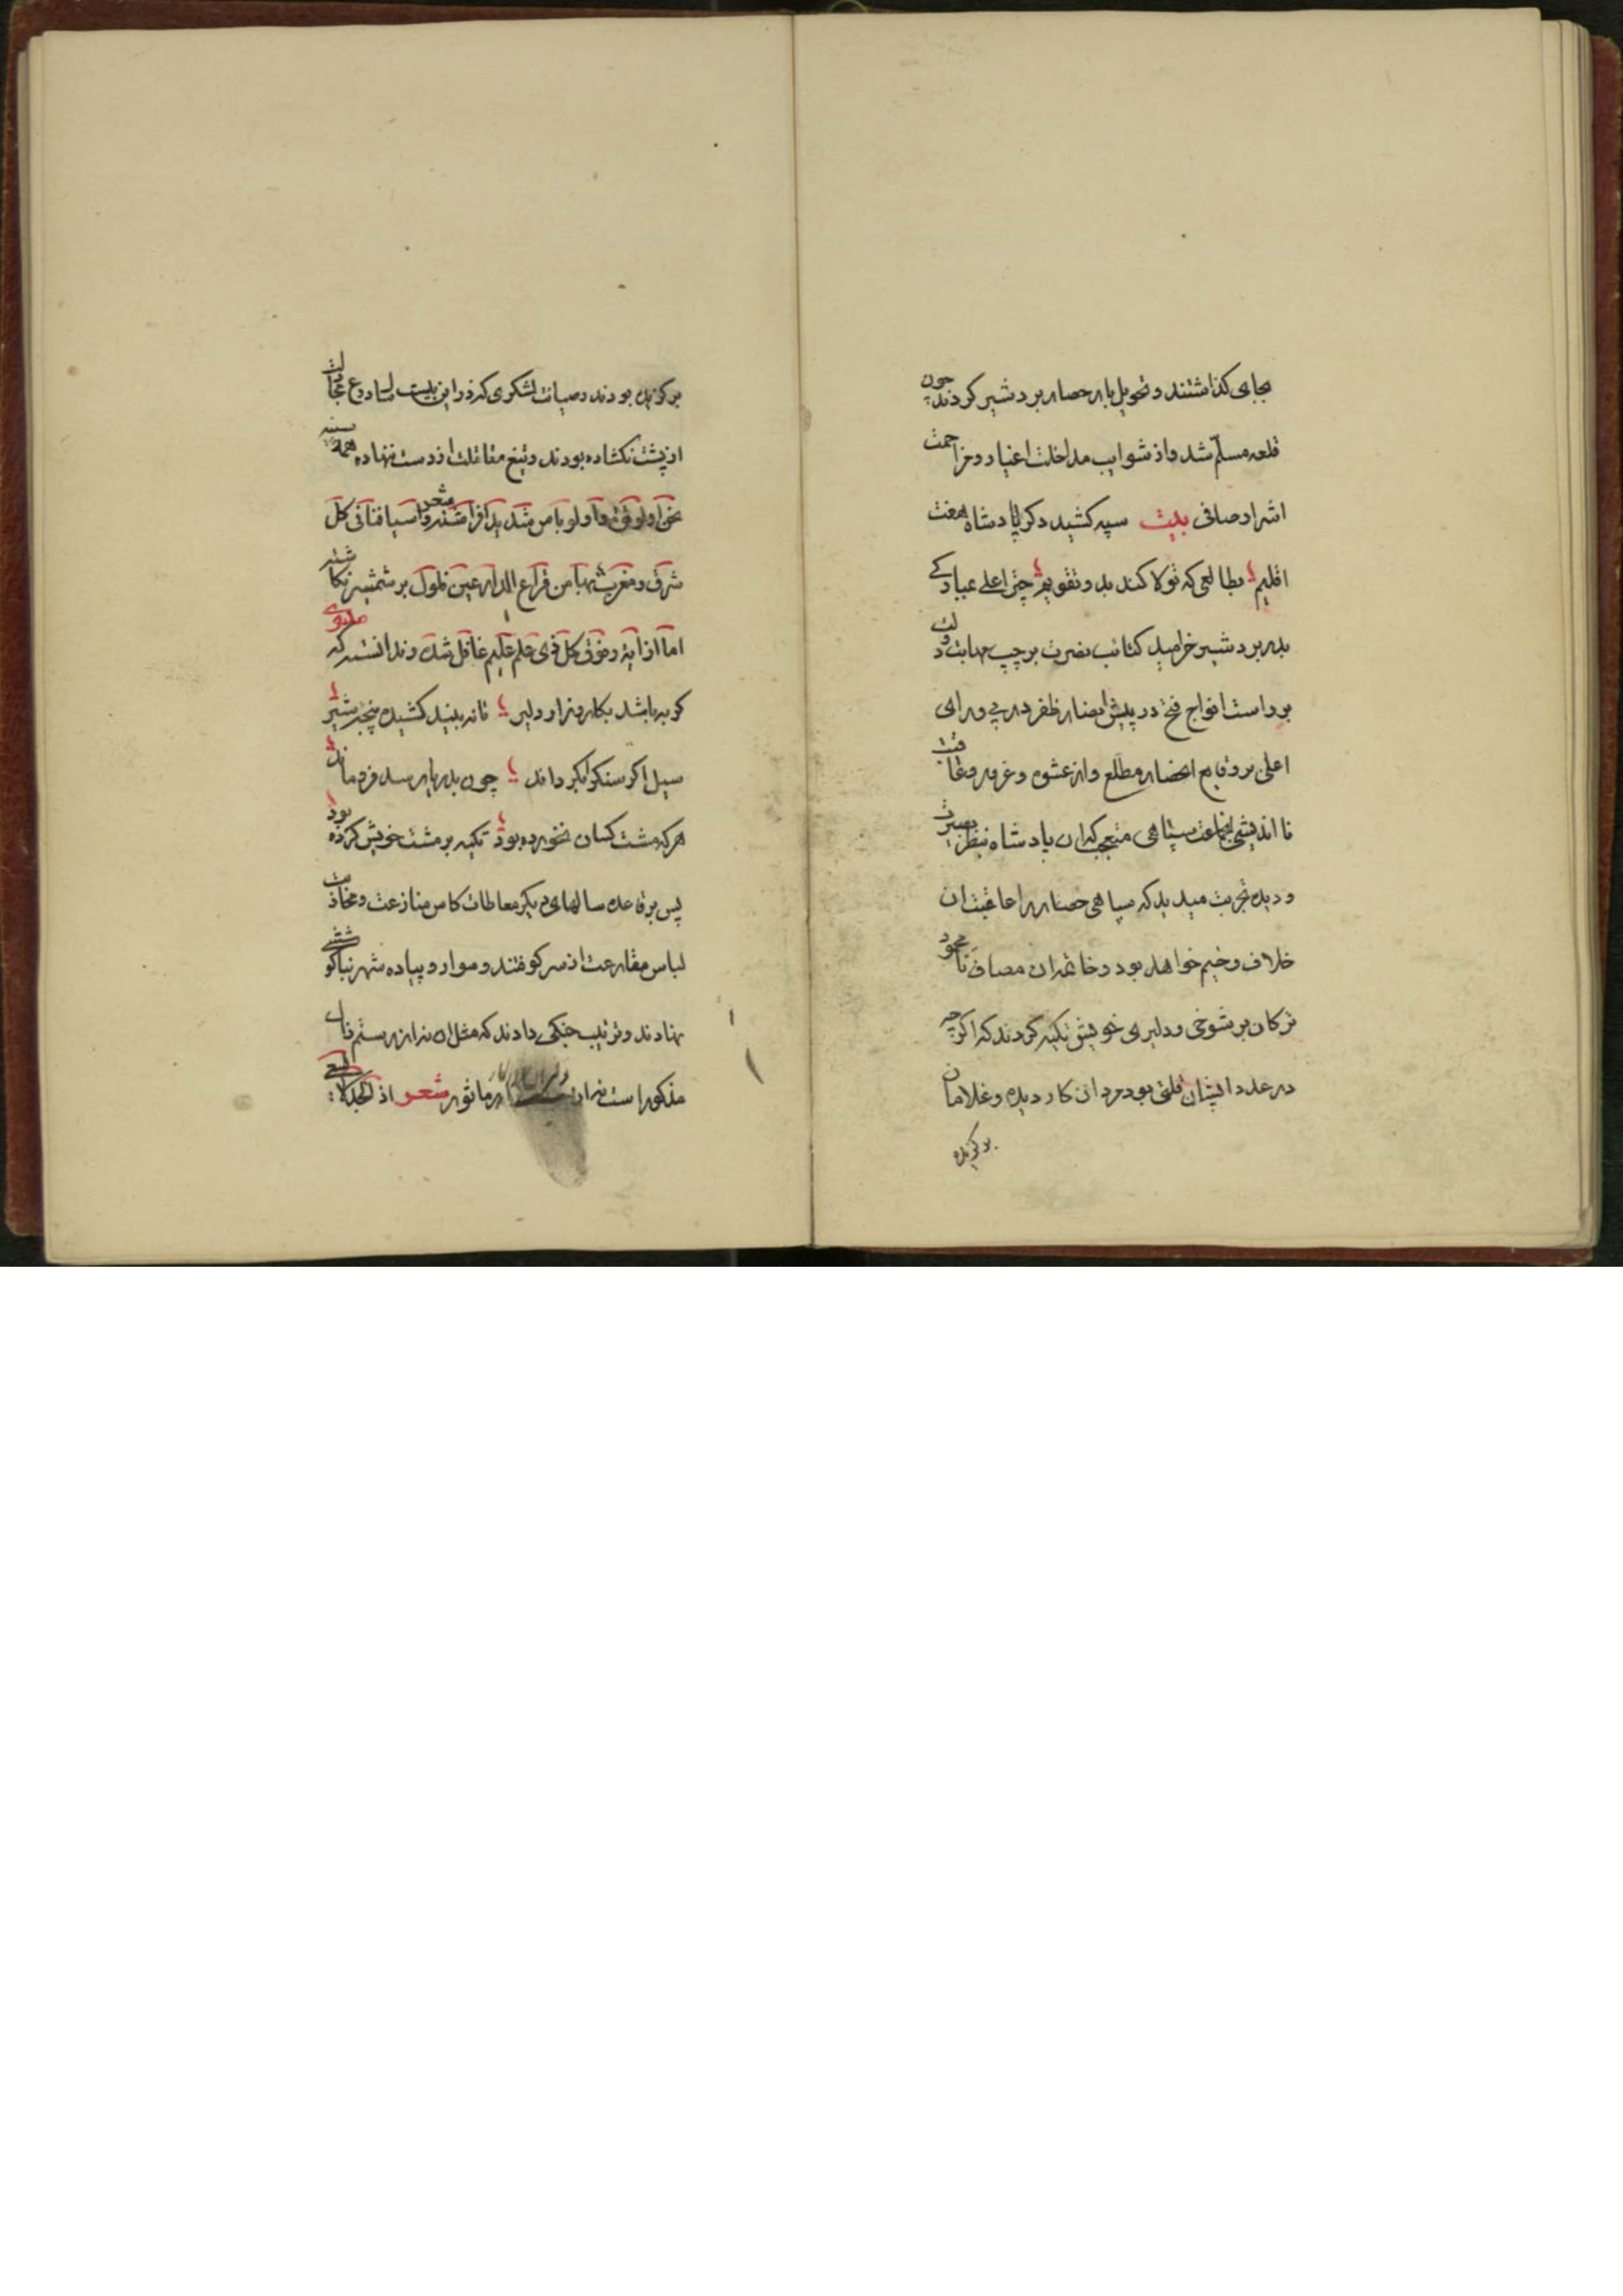 بجای کذاشتند و تحویل بار حصار بردشیر کردند چون
قلعه مسلّم شد و از شوایب مداخلت اغیار و مزاحمت
اشرار صافی بیت سپه کشید دکر پادشاه هفت
اقلیم بطالعی که تولا کند بدو تقویم چتر اعلی عیاد
بدر بردشیر خرامید کتائب نصرت بر چپ مهابت و
بر راست افواج فتح در پیش انصار ظفر در پی و رای
اعلی بر وقایع احضار مطلع و از عشوه و غرور وعاقبت
نا اندیشی جماعت سپاهی متعجب که ان پادشاه بنظر بصیرت
و دیده تجربت میدید که سپاهی حصار را عاقبت ان
خلاف وخیم خواهد بود و خاتمت ان مصاف نا محمود
ترکان بر شوخی و دلیری خویش تکیه کردند که اکرچه
در عدد ایشان قلتی بود مردان کار دیده و غلامان
برکزیده
برکزیده بودند و میان لشکری که در این بیست سال دروع مجادلت
از پشت نکشاده بودند و تیغ مقاتلت از دست ننهاده همه
نحن اولو قوة و اولو باس شدید افراشتند شعر و اسیافنا فی کل
شرق و مغرب بها من قراع الدارعین فلول بر شمشیر نکاشته
اما از ایة و فوق کل ذی علم علیم غافل شدند و ندانستند که مثنوی
کربه باشد بکار زار دلیر تا نه بیند کشیده پنجه شیر
سیل اکر سنک را بکرداند چون بدریا رسد فرو ماند
هر که مشت کسان نخورده بود تکیه بر مشت خویش کرده بود
پس بر قاعده سالهای دیکر معاطات کاس منازعت و محاذ
لباس مقارعت از سر کوفتند و سوار و پیاده شهر
نهادند و ترتیب جنکی دادند که مثل ان نه از رستم زال
مذکور است نه از ماثور شعر اذ